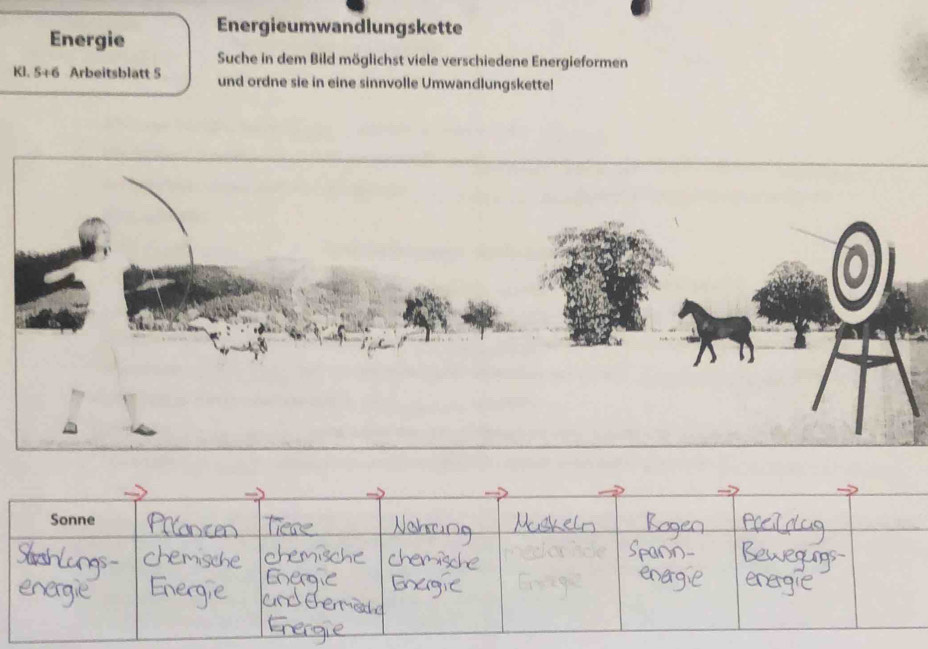 Energie
Kl. 5+6 Arbeitsblatt 5
Energieumwandlungskette
Suche in dem Bild möglichst viele verschiedene Energieformen
und ordne sie in eine sinnvolle Umwandlungskette!
Sonne Pflanzen Tiere Nahrung Muskeln Bogen Pfeilflug
Strahlungs- chemische chemische chemische mechanische Spann- Bewegungs-
energie Energie Energie Energie Energie energie energie
und thermische
Energie